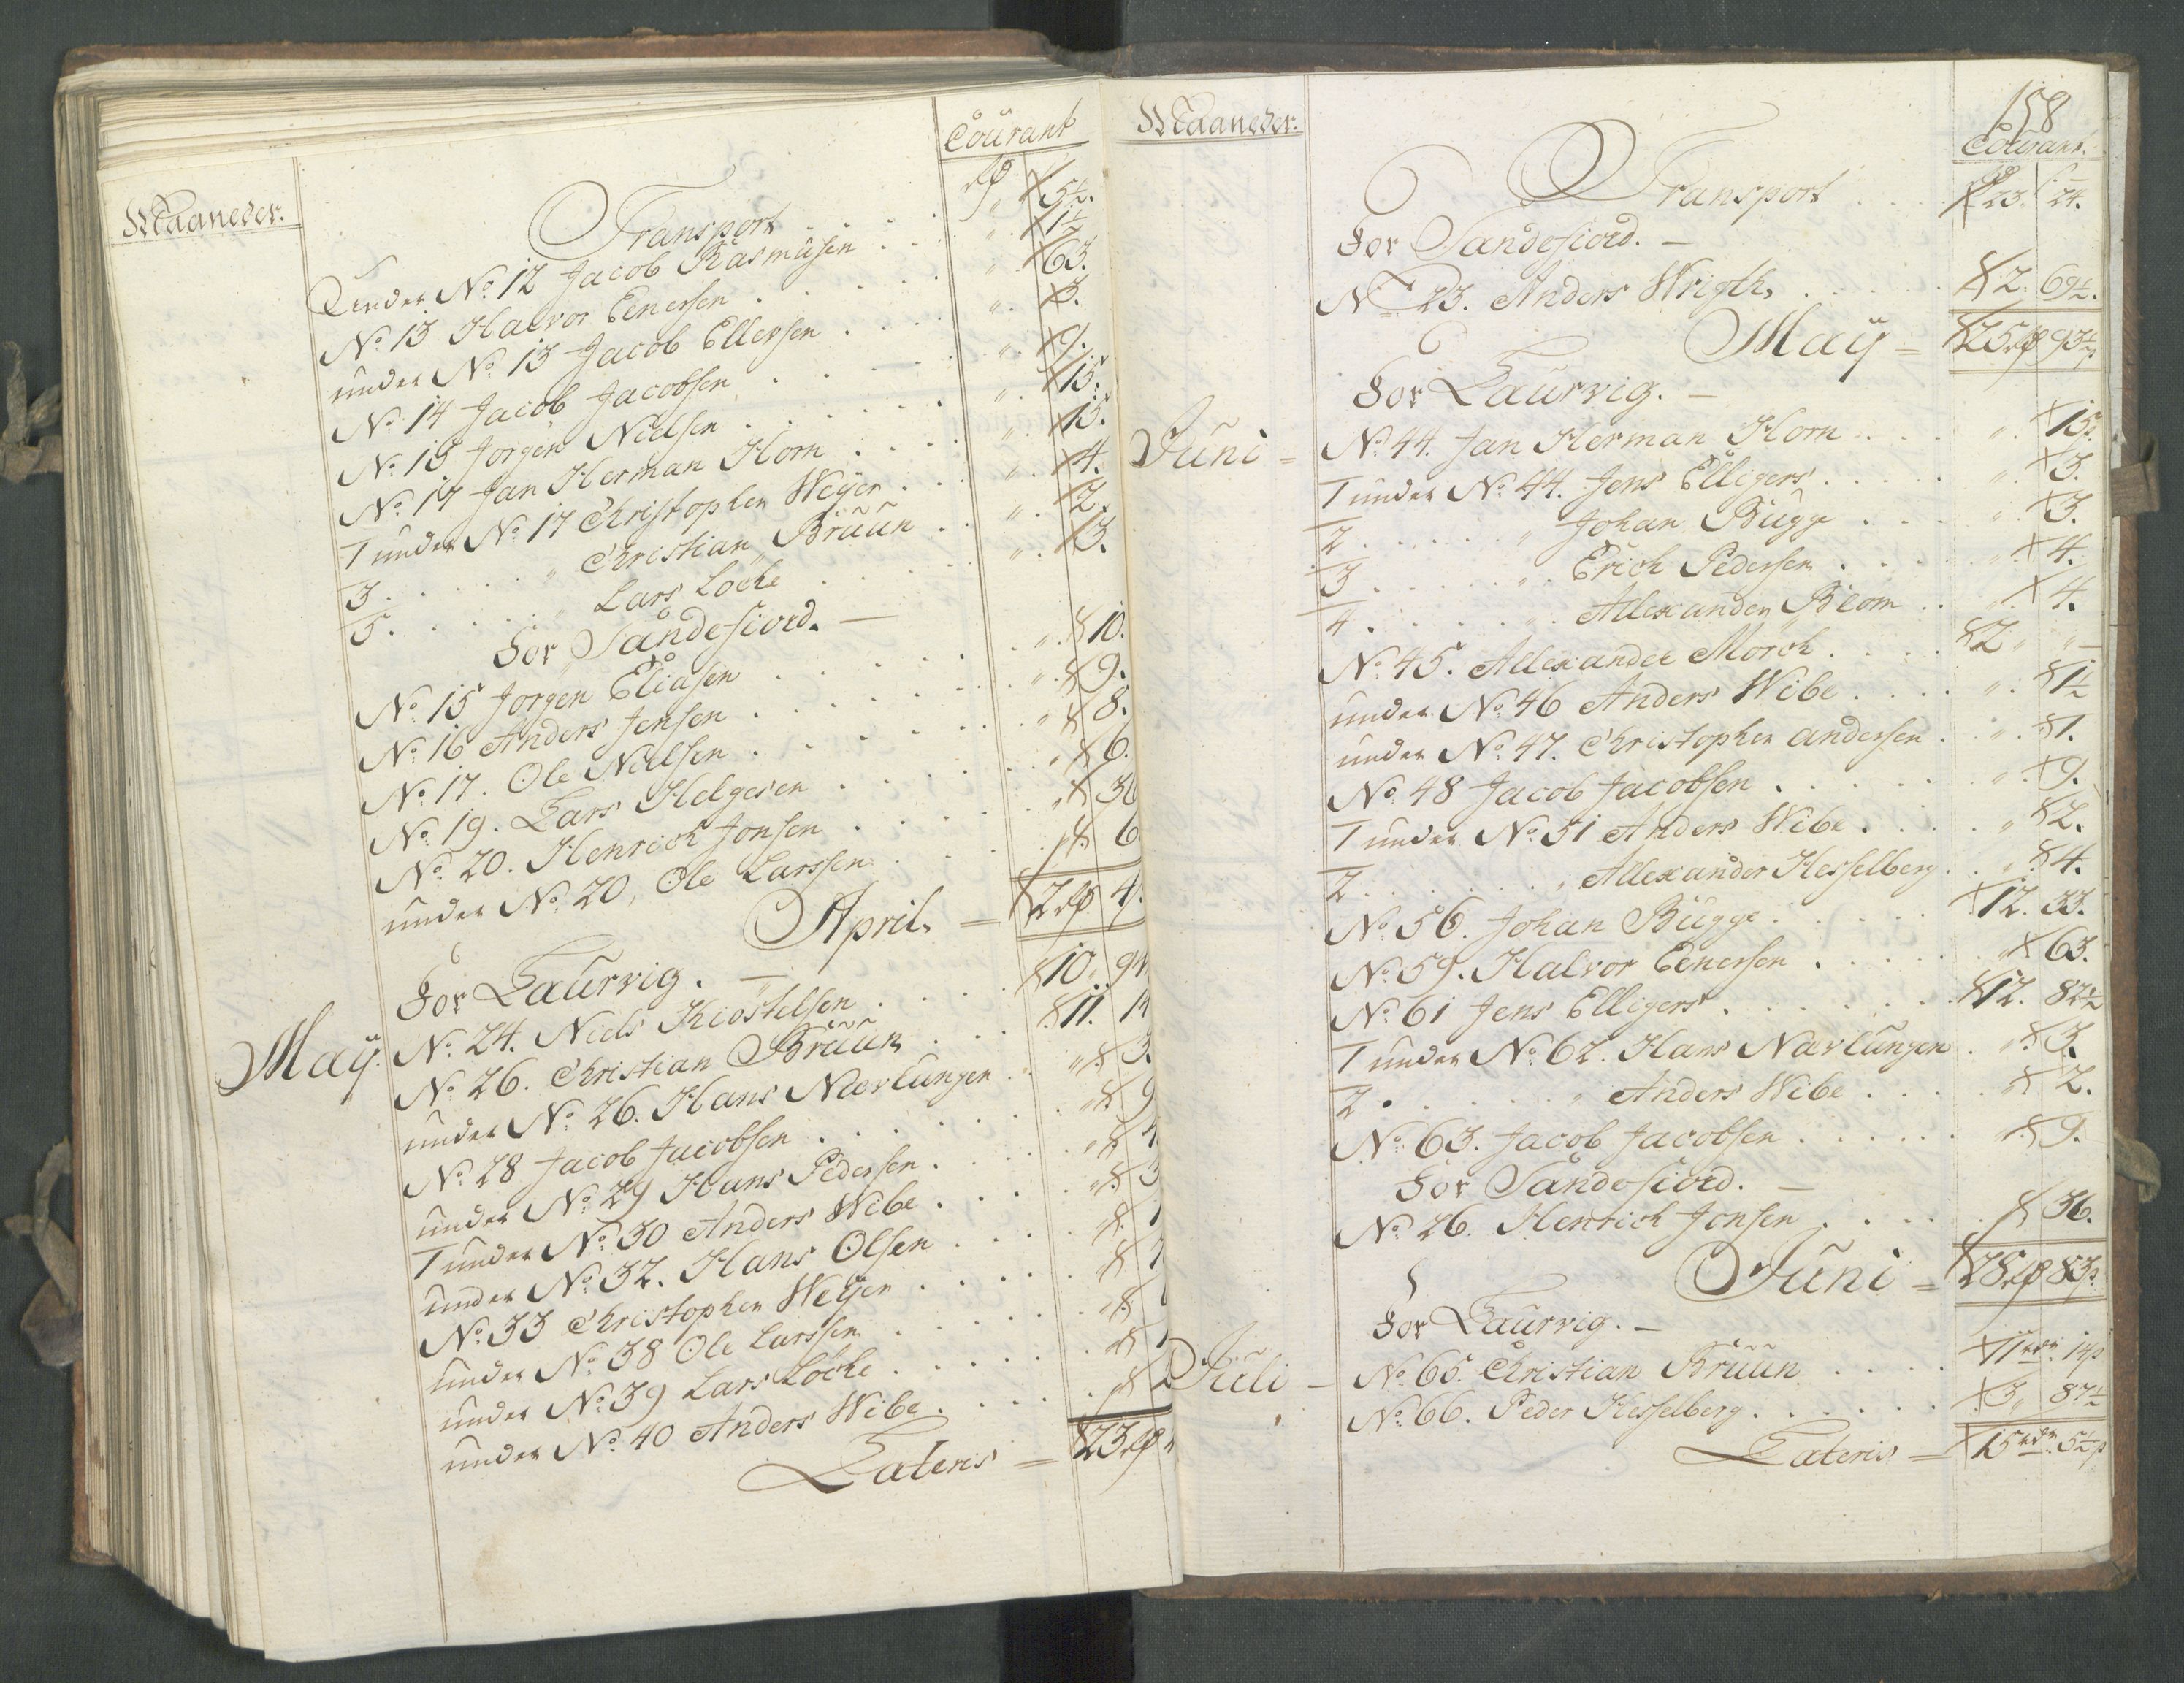 Maaneder.
Courant
rd
Transport . . . . „ 5 1/2.
Under No. 12 Jacob Rasmusen . . „ 1 1/2
No. 13 Halvor Eenersen . . . . „ 63.
under No. 13 Jacob Ellersen . . . „ 3.
No. 14 Jacob Jacobsen . . . . „ 9.
No. 15 Jorgen Nielsen . . . . „ 15.
No. 17 Jan Herman Horn . . . „ 15.
1 under No. 17 Christopher Weyer . . „ 4.
3 . . . . „ Christian Bruun . . „ 2.
5 . . . . „ Lars Loche . . . „ 3.
For Sandefiord. —
No. 15 Jorgen Eliasen . . . . „ 10.
No. 16 Anders Jensen . . . . „ 9.
No. 17. Ole Nielsen . . . . „ 8.
No. 19. Lars Helgesen . . . . „ 6.
No. 20. Henrich Jonsen . . . . „ 36
under No. 20, Ole Larssen . . . „ 6.
April. = 2 rd 4.
For Laurvig. —
May. No. 24. Niels Kiostelsen . . . 10. 94
No. 26. Christian Bruun . . . 11. 14
under No. 26. Hans Nærlungen . . „ 3.
No. 28 Jacob Jacobsen . . . . „ 9
under No. 29 Hans Pedersen . . . „ 4
1 under No. 30 Anders Wibe . . . „ 3
under No. 32. Hans Olsen . . . .
No. 33 Christopher Weyer . . . .
under No. 38 Ole Larssen . . . .
under No. 39 Lars Loche . . . .
under No. 40 Anders Wibe . . . . 2
Lateris = 23 rd
Maaneder.
158
Courant.
Transport . . . 23. 24.
For Sandefiord. —
No. 23. Anders Wrigth, . . . . 2. 69 1/2.
May = 25 rd 93 1/2
For Laurvig. —
Juni = No. 44. Jan Herman Horn . . . „ 15.
1 under No. 44. Jens Elligers . . . . „ 3.
2 . . . . „ Johan Bugge . . . „ 3.
3 . . . . „ Erich Pedersen . . . „ 4.
4 . . . . „ Allexander Blom . . „ 4.
No. 45. Allexander Morch . . . . 2 „ „ —
under No. 46 Anders Wibe . . . . „ 1 1/2
under No. 47. Christopher andersen . . „ 1.
No. 48 Jacob Jacobsen . . . . . „ 9.
1 under No. 51 Anders Wibe . . . . „ 2.
2 . . . . . „ Allexander Hesselberg . . „ 4.
No. 56. Johan Bugge . . . . . 12. 33.
No. 59. Halvor Eenersen . . . . . „ 63.
No. 61 Jens Elligers . . . . . . 12. 82 1/2
1 under No. 62. Hans Nærlungen . . „ 3.
2 . . . . . „ Anders Wibe . . . . „ 2.
No. 63. Jacob Jacobsen . . . . . „ 9.
For Sandefiord. —
No. 26. Henrich Jonsen . . . . . „ 36.
Juni = 28 rd 83.
For Laurvig. —
Juli — No. 65. Christian Bruun . . . . 11 rdr. 14
No. 66. Peder Hesselberg . . . . . . 3 „ 87 1/2
Lateris = 15 rdr. 5 1/2